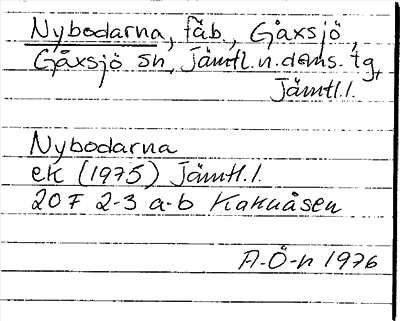 Nybodarna, fäb., Gåxsjö,
Gåxsjö sn, Jämtl. n. doms. tg,
Jämtl. l.
Nybodarna
ek (1975) Jämtl. l.
20 F 2-3 a-b Kakuåsen
A-Ö-n 1976